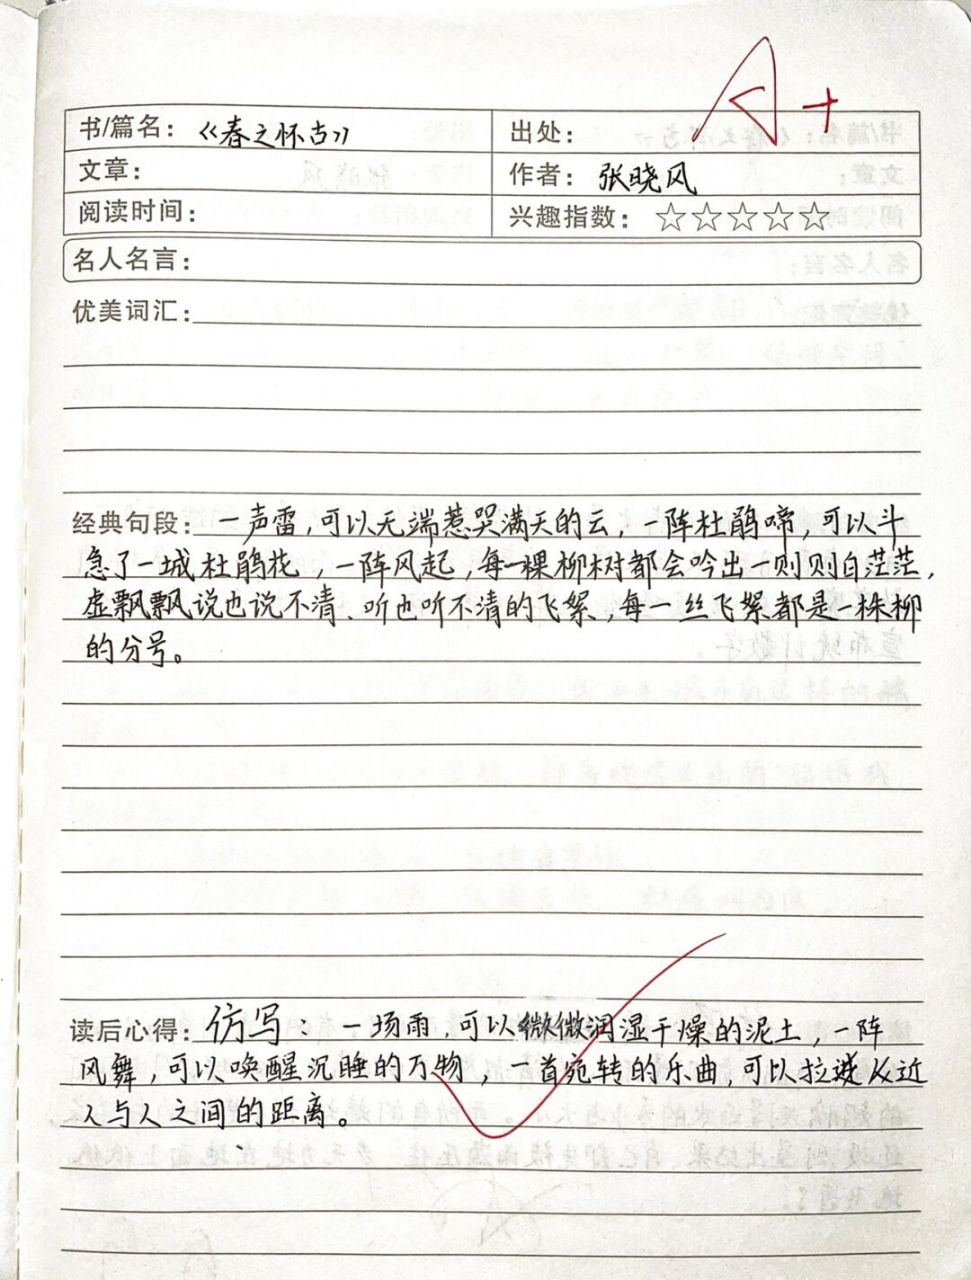 A+
书/篇名：《春之怀古》 出处：
文章： 作者：张晓风
阅读时间： 兴趣指数：☆☆☆☆☆
名人名言：
优美词汇：
经典句段：一声雷，可以无端惹哭满天的云，一阵杜鹃啼，可以斗
急了一城杜鹃花，一阵风起，每一棵柳树都会吟出一则则白茫茫，
虚飘飘说也说不清、听也听不清的飞絮，每一丝飞絮都是一株柳
的分号。
读后心得：仿写：一场雨，可以微微润湿干燥的泥土，一阵
风舞，可以唤醒沉睡的万物，一首宛转的乐曲，可以拉近
人与人之间的距离。